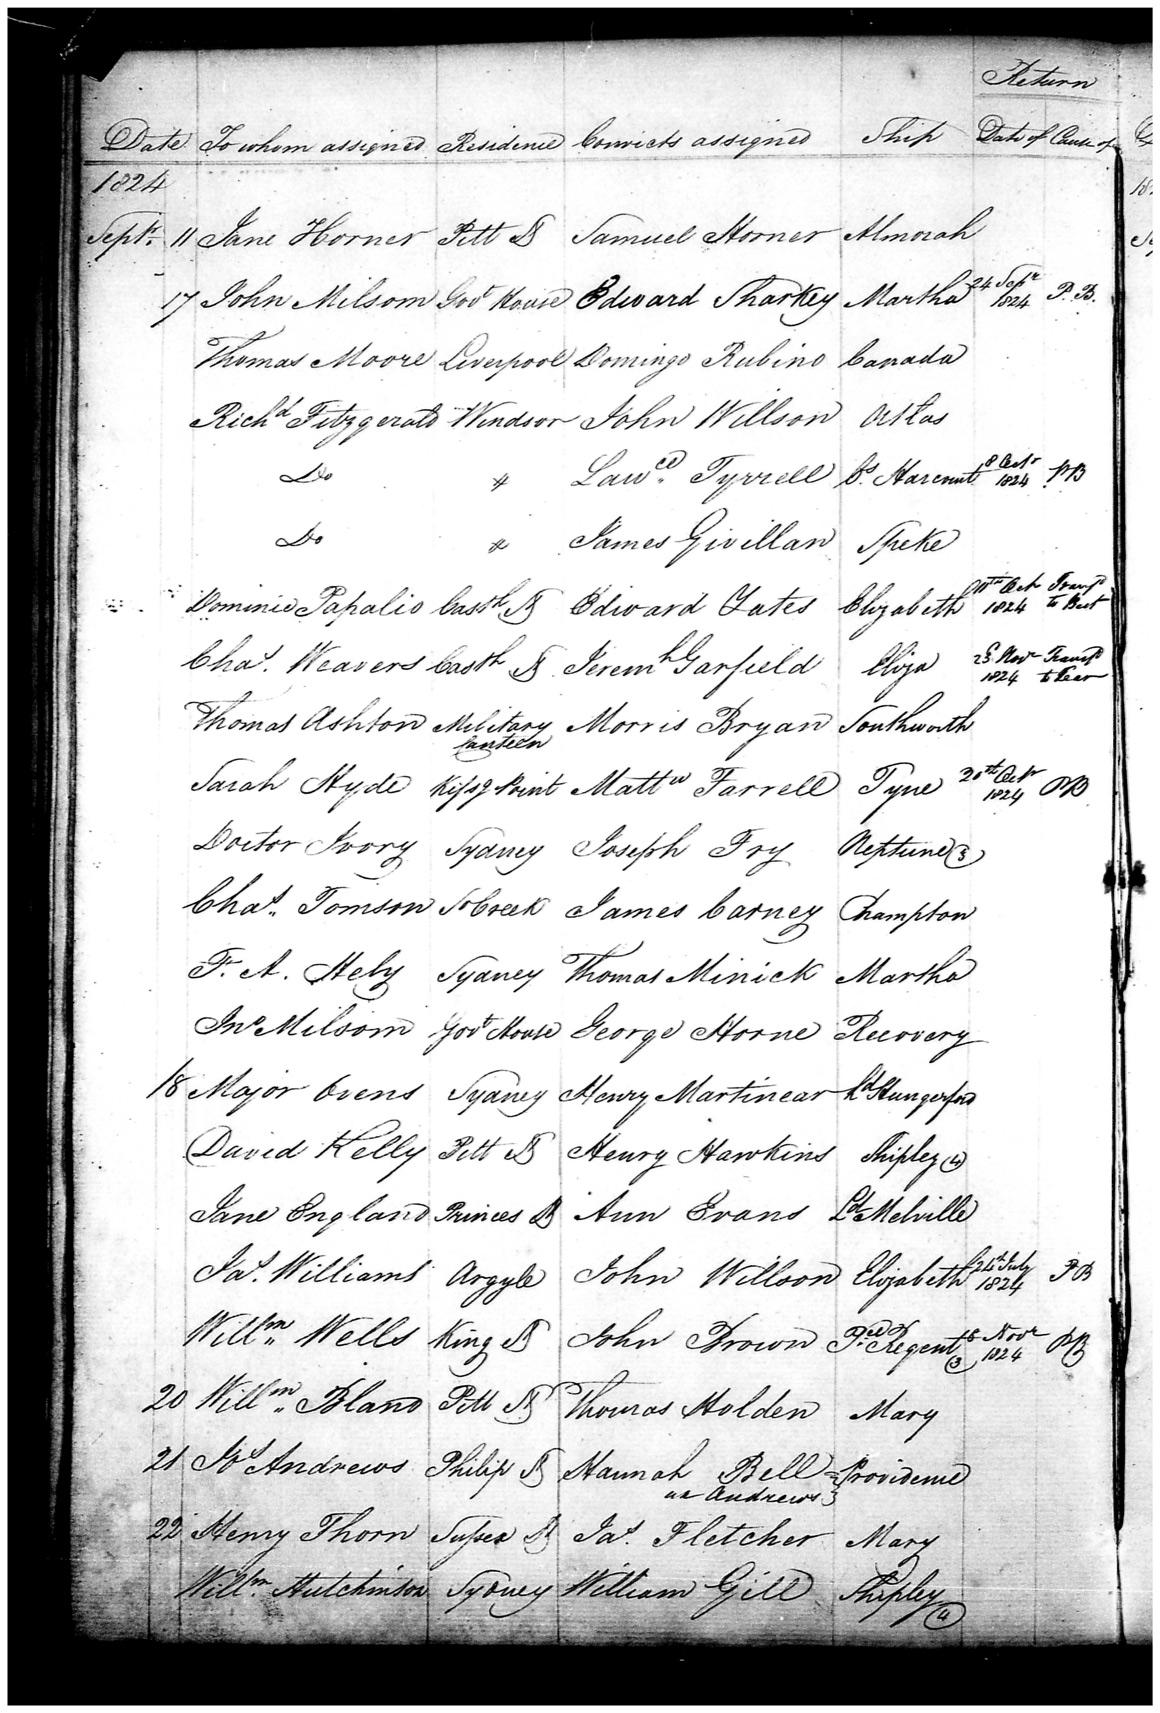 Return
Date To whom assigned Residence Convicts assigned Ship Date of Cause of
1824
Septr. 11 Jane Horner Pitt St Samuel Horner Almorah
17 John Milsom Govt House Edward Sharkey Martha 24 Sepr 1824 P.B.
Thomas Moore Liverpool Domingo Rubino Canada
Richd Fitzgerald Windsor John Willson Atlas
Do " Lawce. Tyrrell Cs. Harcourt 8 Octr 1824 PB
Do " James Givillan Speke
Dominic Papalio Casth St Edward Yates Elizabeth 11th Octr 1824 Transfd to
Chas. Weavers Casth St Jeremh Garfield Eliza 23 Novr 1824 Transfd to
Thomas Ashton Military Canteen Morris Bryan Southworth
Sarah Hyde Kissg Point Mattw Farrell Tyne 20th Octr 1824 PB
Doctor Ivory Sydney Joseph Fry Neptune (3)
Chas. Tomson So Creek James Carney Champton
F. A. Hely Sydney Thomas Minick Martha
Jno Milsom Govt House George Horne Recovery
18 Major Ovens Sydney Henry Martinear Ld Hungerford
David Kelly Pitt St Henry Hawkins Shipley (4)
Jane England Princes St Ann Evans Ld Melville
Jas. Williams Argyle John Willson Elizabeth 24th July 1824 PB
Willm. Wells King St John Brown Pce Regent (3) 8 Novr 1824 PB
20 Willm. Bland Pitt St Thomas Holden Mary
21 Jos Andrews Philip St Hannah Bell Providence
or Andrews
22 Henry Thorn Sussex St Jas. Fletcher Mary
Willm. Hutchinson Sydney William Gill Shipley (4)